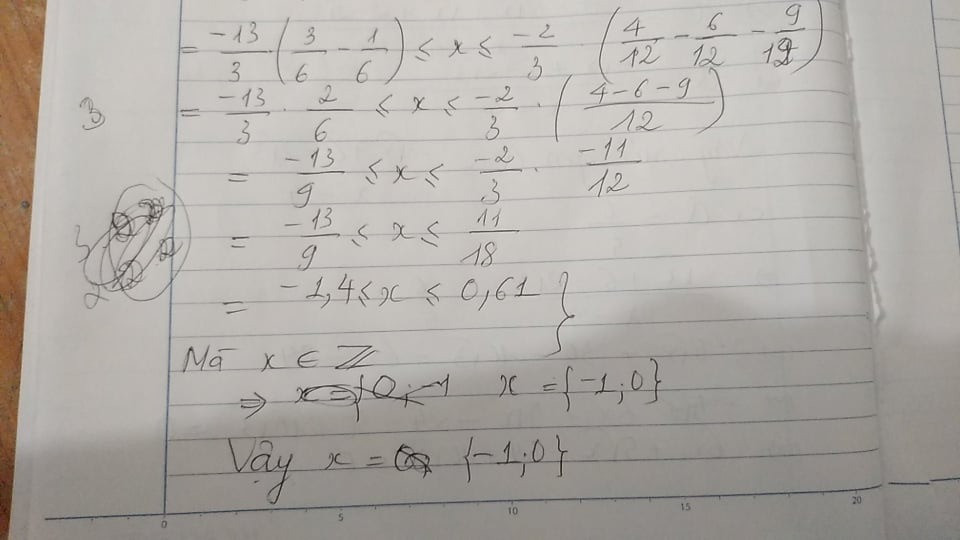 = -13/3 · (3/6 - 1/6) ≤ x ≤ -2/3 · (4/12 - 6/12 - 9/12)
3
= -13/3 · 2/6 ≤ x ≤ -2/3 · (4-6-9/12)
= -13/9 ≤ x ≤ -2/3 · -11/12
= -13/9 ≤ x ≤ 11/18
= -1,4 ≤ x ≤ 0,61 }
Mà x ∈ ℤ
⇒ x = {-1;0}
Vậy x = {-1;0}
0 5 10 15 20